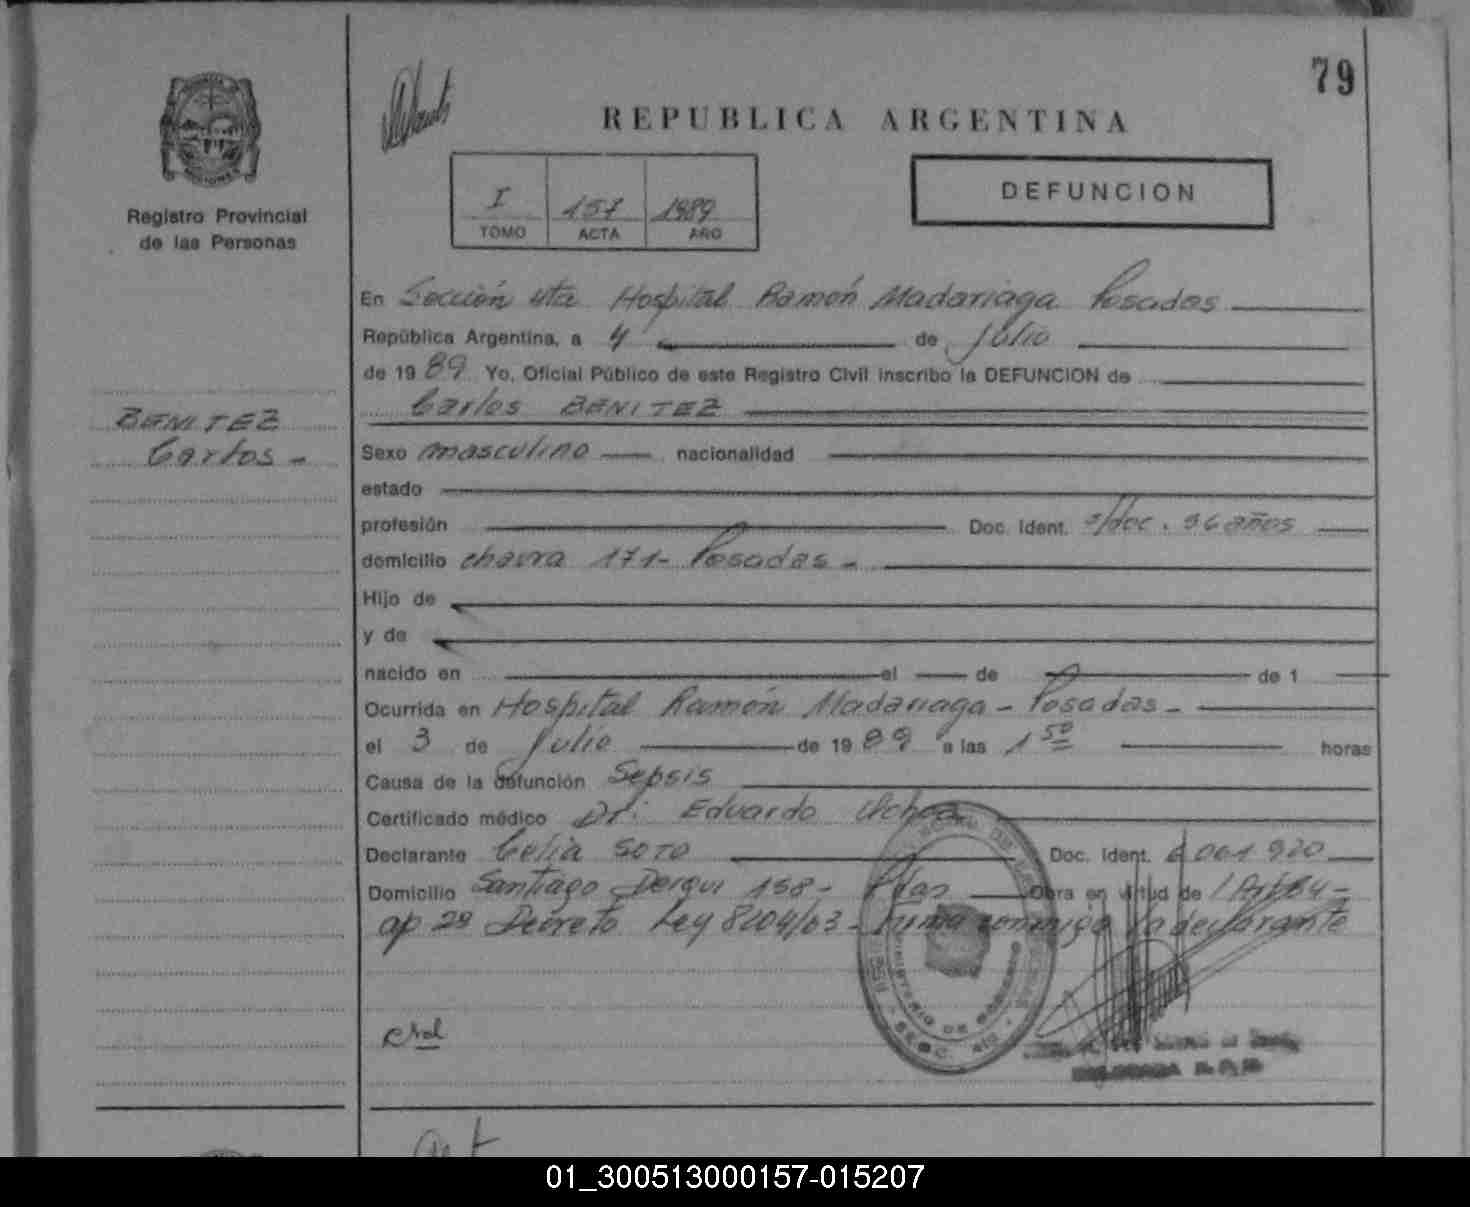 79
REPUBLICA ARGENTINA
DEFUNCION
Registro Provincial
de las Personas
I 157 1989
TOMO ACTA AÑO
En Sección 4ta Hospital Ramón Madariaga Posadas
República Argentina, a 4 de Julio
de 1989 Yo, Oficial Público de este Registro Civil inscribo la DEFUNCION de
Carlos BENITEZ
BENITEZ
Carlos -
Sexo masculino nacionalidad
estado
profesión Doc. Ident. s/doc. 36 años
domicilio chacra 171- Posadas -
Hijo de
y de
nacido en el de de 1
Ocurrida en Hospital Ramón Madariaga - Posadas -
el 3 de Julio de 1989 a las 1 50 horas
Causa de la defunción Sepsis
Certificado médico Dr. Eduardo Ochoa
Declarante Celia SOTO Doc. Ident. 6 061 920
Domicilio Santiago Derqui 158- Pdas Obra en virtud de
ap 2º Decreto Ley 8204/63 - firma conmigo la declarante
MINISTERIO DE GOBIERNO
01_300513000157-015207